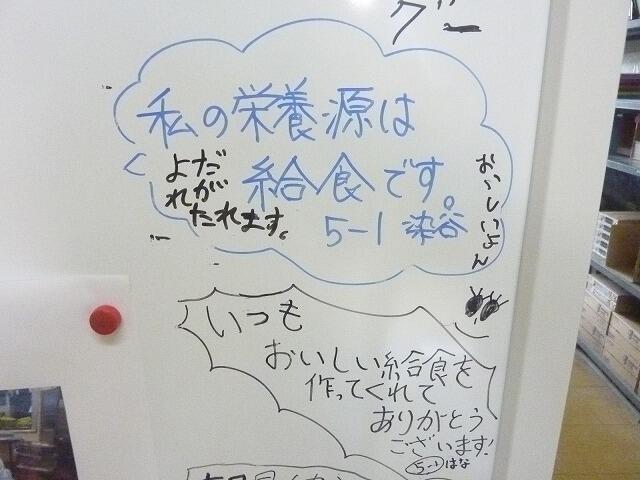 グー
私の栄養源は
給食です。
よだ
れが
たれます。
おいしいよん
5-1 染谷
いつも
おいしい給食を
作ってくれて
ありがとう
ございます!
5-1 はな